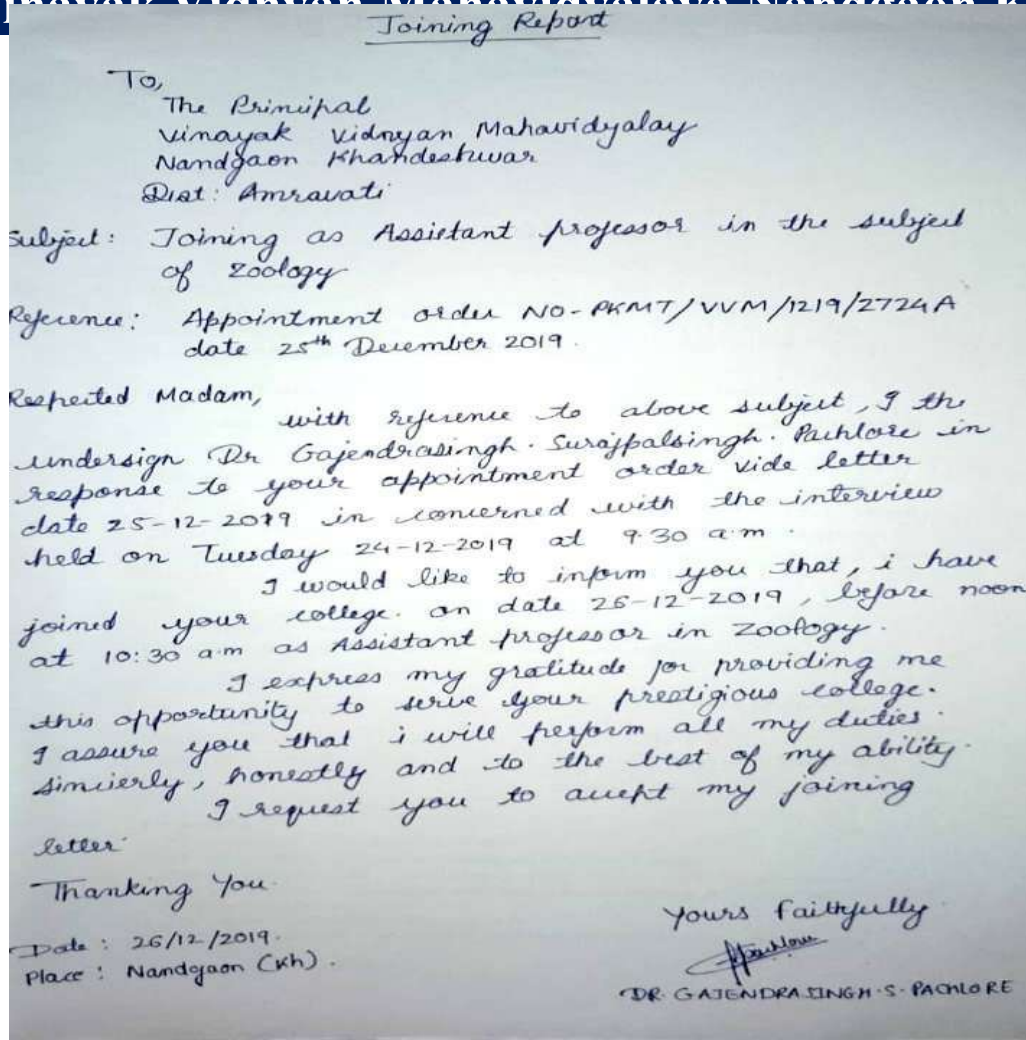 Joining Report
To,
The Principal
Vinayak Vidnyan Mahavidyalay
Nandgaon Khandeshwar
Dist: Amravati
Subject: Joining as Assistant professor in the subject
of Zoology
Reference: Appointment order NO-PKMT/VVM/1219/2724A
date 25th December 2019.
Respected Madam,
with reference to above subject, I the
undersign Dr Gajendrasingh. Surajpalsingh. Pachlore in
response to your appointment order vide letter
date 25-12-2019 in concerned with the interview
held on Tuesday 24-12-2019 at 9.30 a.m.
I would like to inform you that, i have
joined your college. on date 26-12-2019, before noon
at 10:30 a.m as Assistant professor in Zoology.
I express my gratitude for providing me
this opportunity to serve your prestigious college.
I assure you that i will perform all my duties.
sincierly, honestly and to the best of my ability.
I request you to accept my joining
letter.
Thanking You.
Yours Faithfully
Date: 26/12/2019.
Place: Nandgaon (Kh).
DR. GAJENDRASINGH.S.PACHLORE